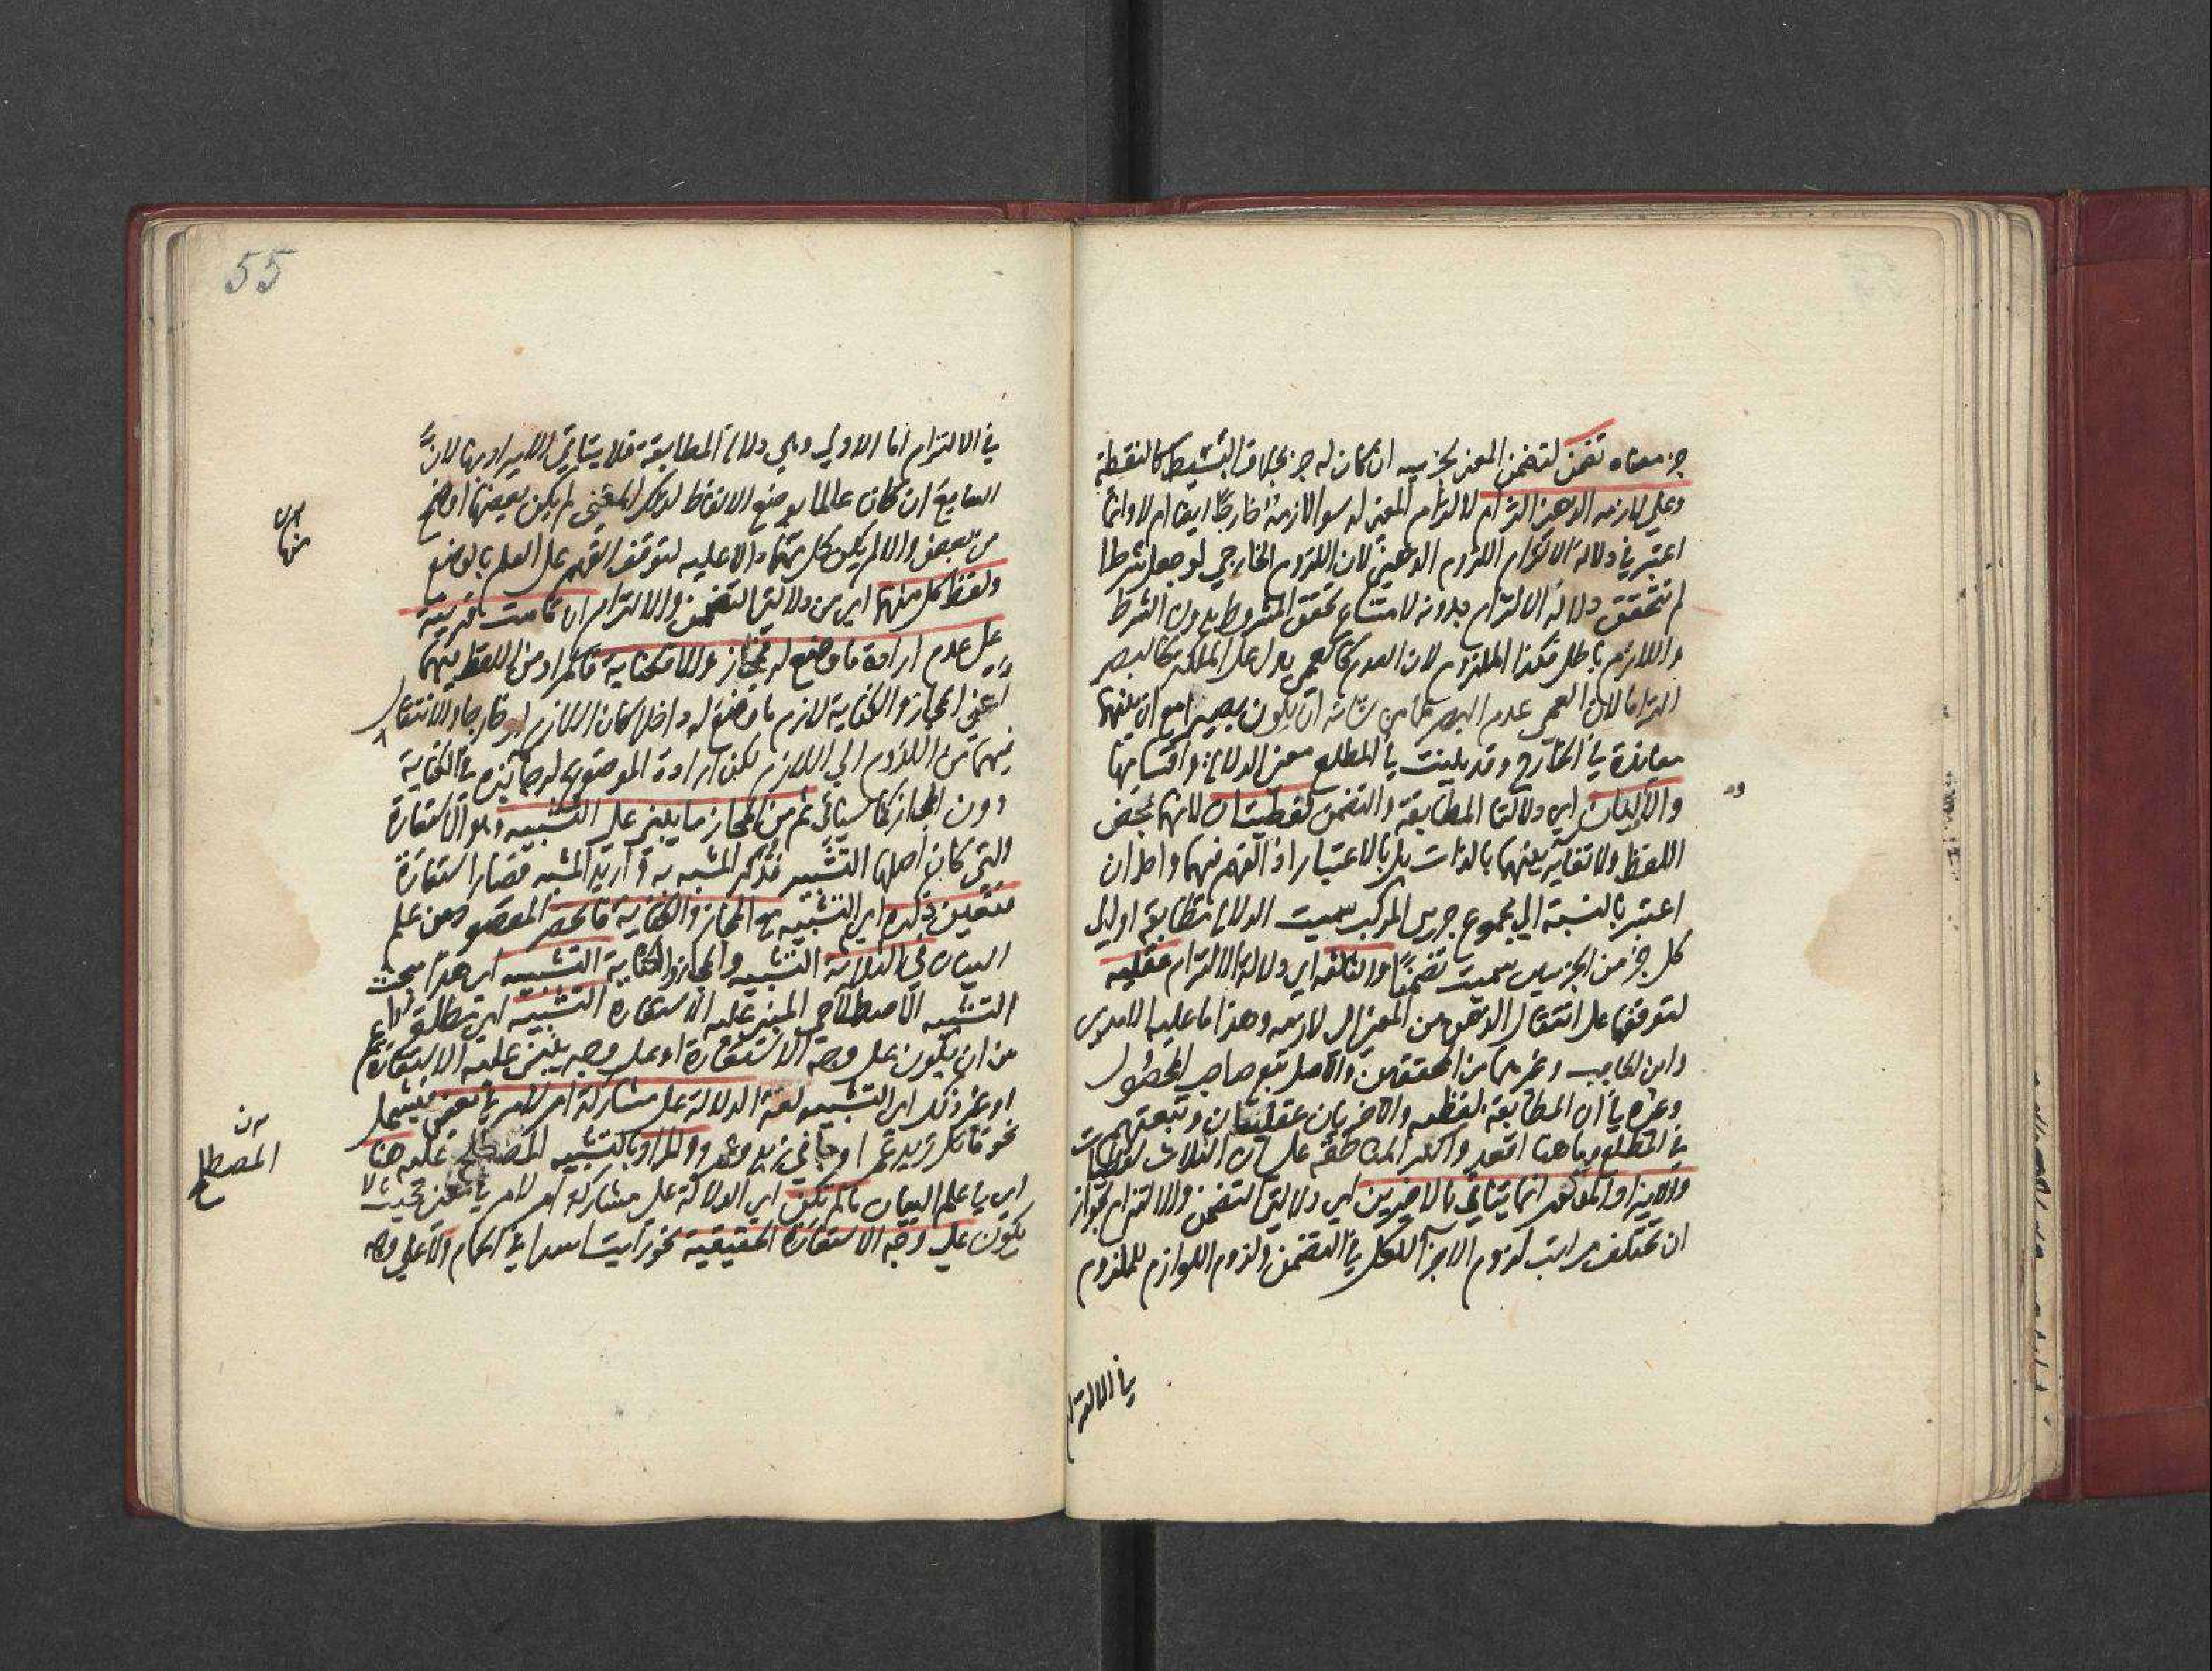 جزء معناه تضمن لتضمن المعنى لجزئيه ان كان له جزء بخلاف البسيط كالنقطة
وعلى لازمه الذهني التزام لالتزام المعنى له سوا لازمه خارجًا ايضا ام لا وانما
اعتبر في دلالة الالتزام اللزوم الذهني لان اللزوم الخارجي لو جعل شرطا
لم تتحقق دلالة الالتزام بدونه لامتناع تحقق المشروط بدون الشرط
واللازم باطل فكذا الملزوم لان العدم كالعمى يدل على الملكة كالبصر
التزاما لان العمى عدم البصر عما من شانه ان يكون بصيرا مع ان بينهما
معاندة في الخارج وقد بينت في المطلع معنى الدلالة واقسامها
والاوليان اي دلالتا المطابقة والتضمن لفظيتان لانهما بمحض
اللفظ ولا تغاير بينهما بالذات بل بالاعتبار اذ الفهم فيهما واحد ان
اعتبر بالنسبة الى مجموع جزءي المركب سميت الدلالة مطابقة او الى
كل جزء من الجزءين سميت تضمنًا والثالثة اي دلالة الالتزام عقلية
لتوقفها على انتقال الذهن من المعنى الى لازمه وهذا ما عليه الامدي
وابن الحاجب وغيرهما من المحققين والاصل تبع صاحب المحصول
وغيره في ان المطابقة لفظية والاخريان عقليتان وتبعتهم
في المطلع وما هنا اقعد واكثر المناطقة على ان الثلاث لفظيات
والايراد المذكور انما يتاتى بالاخيرين اي دلالتي التضمن والالتزام لجواز
ان تختلف مراتب لزوم الاجزا للكل في التضمن ولزوم اللوازم للملزوم
في الالتزا
55
في الالتزام اما الاولى وهي دلالة المطابقة فلا يتاتى الايراد بها لانّ
السامع ان كان عالما بوضع الالفاظ لذلك المعنى لم يكن بعضها اوضح
من بعض والا لم يكن كل منها دالا عليه لتوقف الفهم على العلم بالوضع
ولفظ كل منهما اي من دلالتي التضمن والالتزام ان قامت قرينة
على عدم ارادة ما وضع له فمجاز والا فكناية فالمراد من اللفظ فيهما
اعني المجاز والكناية لازم ما وضع له داخلا كان اللازم او خارجا والانتقال
فيهما من الملزوم الى اللازم لكن ارادة الموضوع له جائزة في الكناية
دون المجاز كما سياتي ثم من المجاز ما يبنى على التشبيه وهو الاستعارة
والتي كان اصلها التشبيه فذكر المشبه به واريد المشبه فصار استعارة
فتعين ذكره اي التشبيه مع المجاز والكناية فانحصر المقصود من علم
البيان في الثلاثة التشبيه والمجاز والكناية التشبيه اي هذا مبحث
التشبيه الاصطلاحي المبني عليه الاستعارة التشبيه اي مطلقا اعم
من ان يكون على وجه الاستعارة او على وجه يبنى عليه الاستعارة
او غير ذلك اي التشبيه لغة الدلالة على مشاركة امر لامر في معنى فيشمل
نحو قاتل زيد عمرا وجاني زيد وعمرو والمراد بالتشبيه المصطلح عليه هنا
اي في علم البيان ما لم تكن اي الدلالة على مشاركة امر لامر في معنى بحيث لا
يكون على وجه الاستعارة الحقيقية نحو رايت اسدا في الحمام ولا على وجه
منها
المصطلح